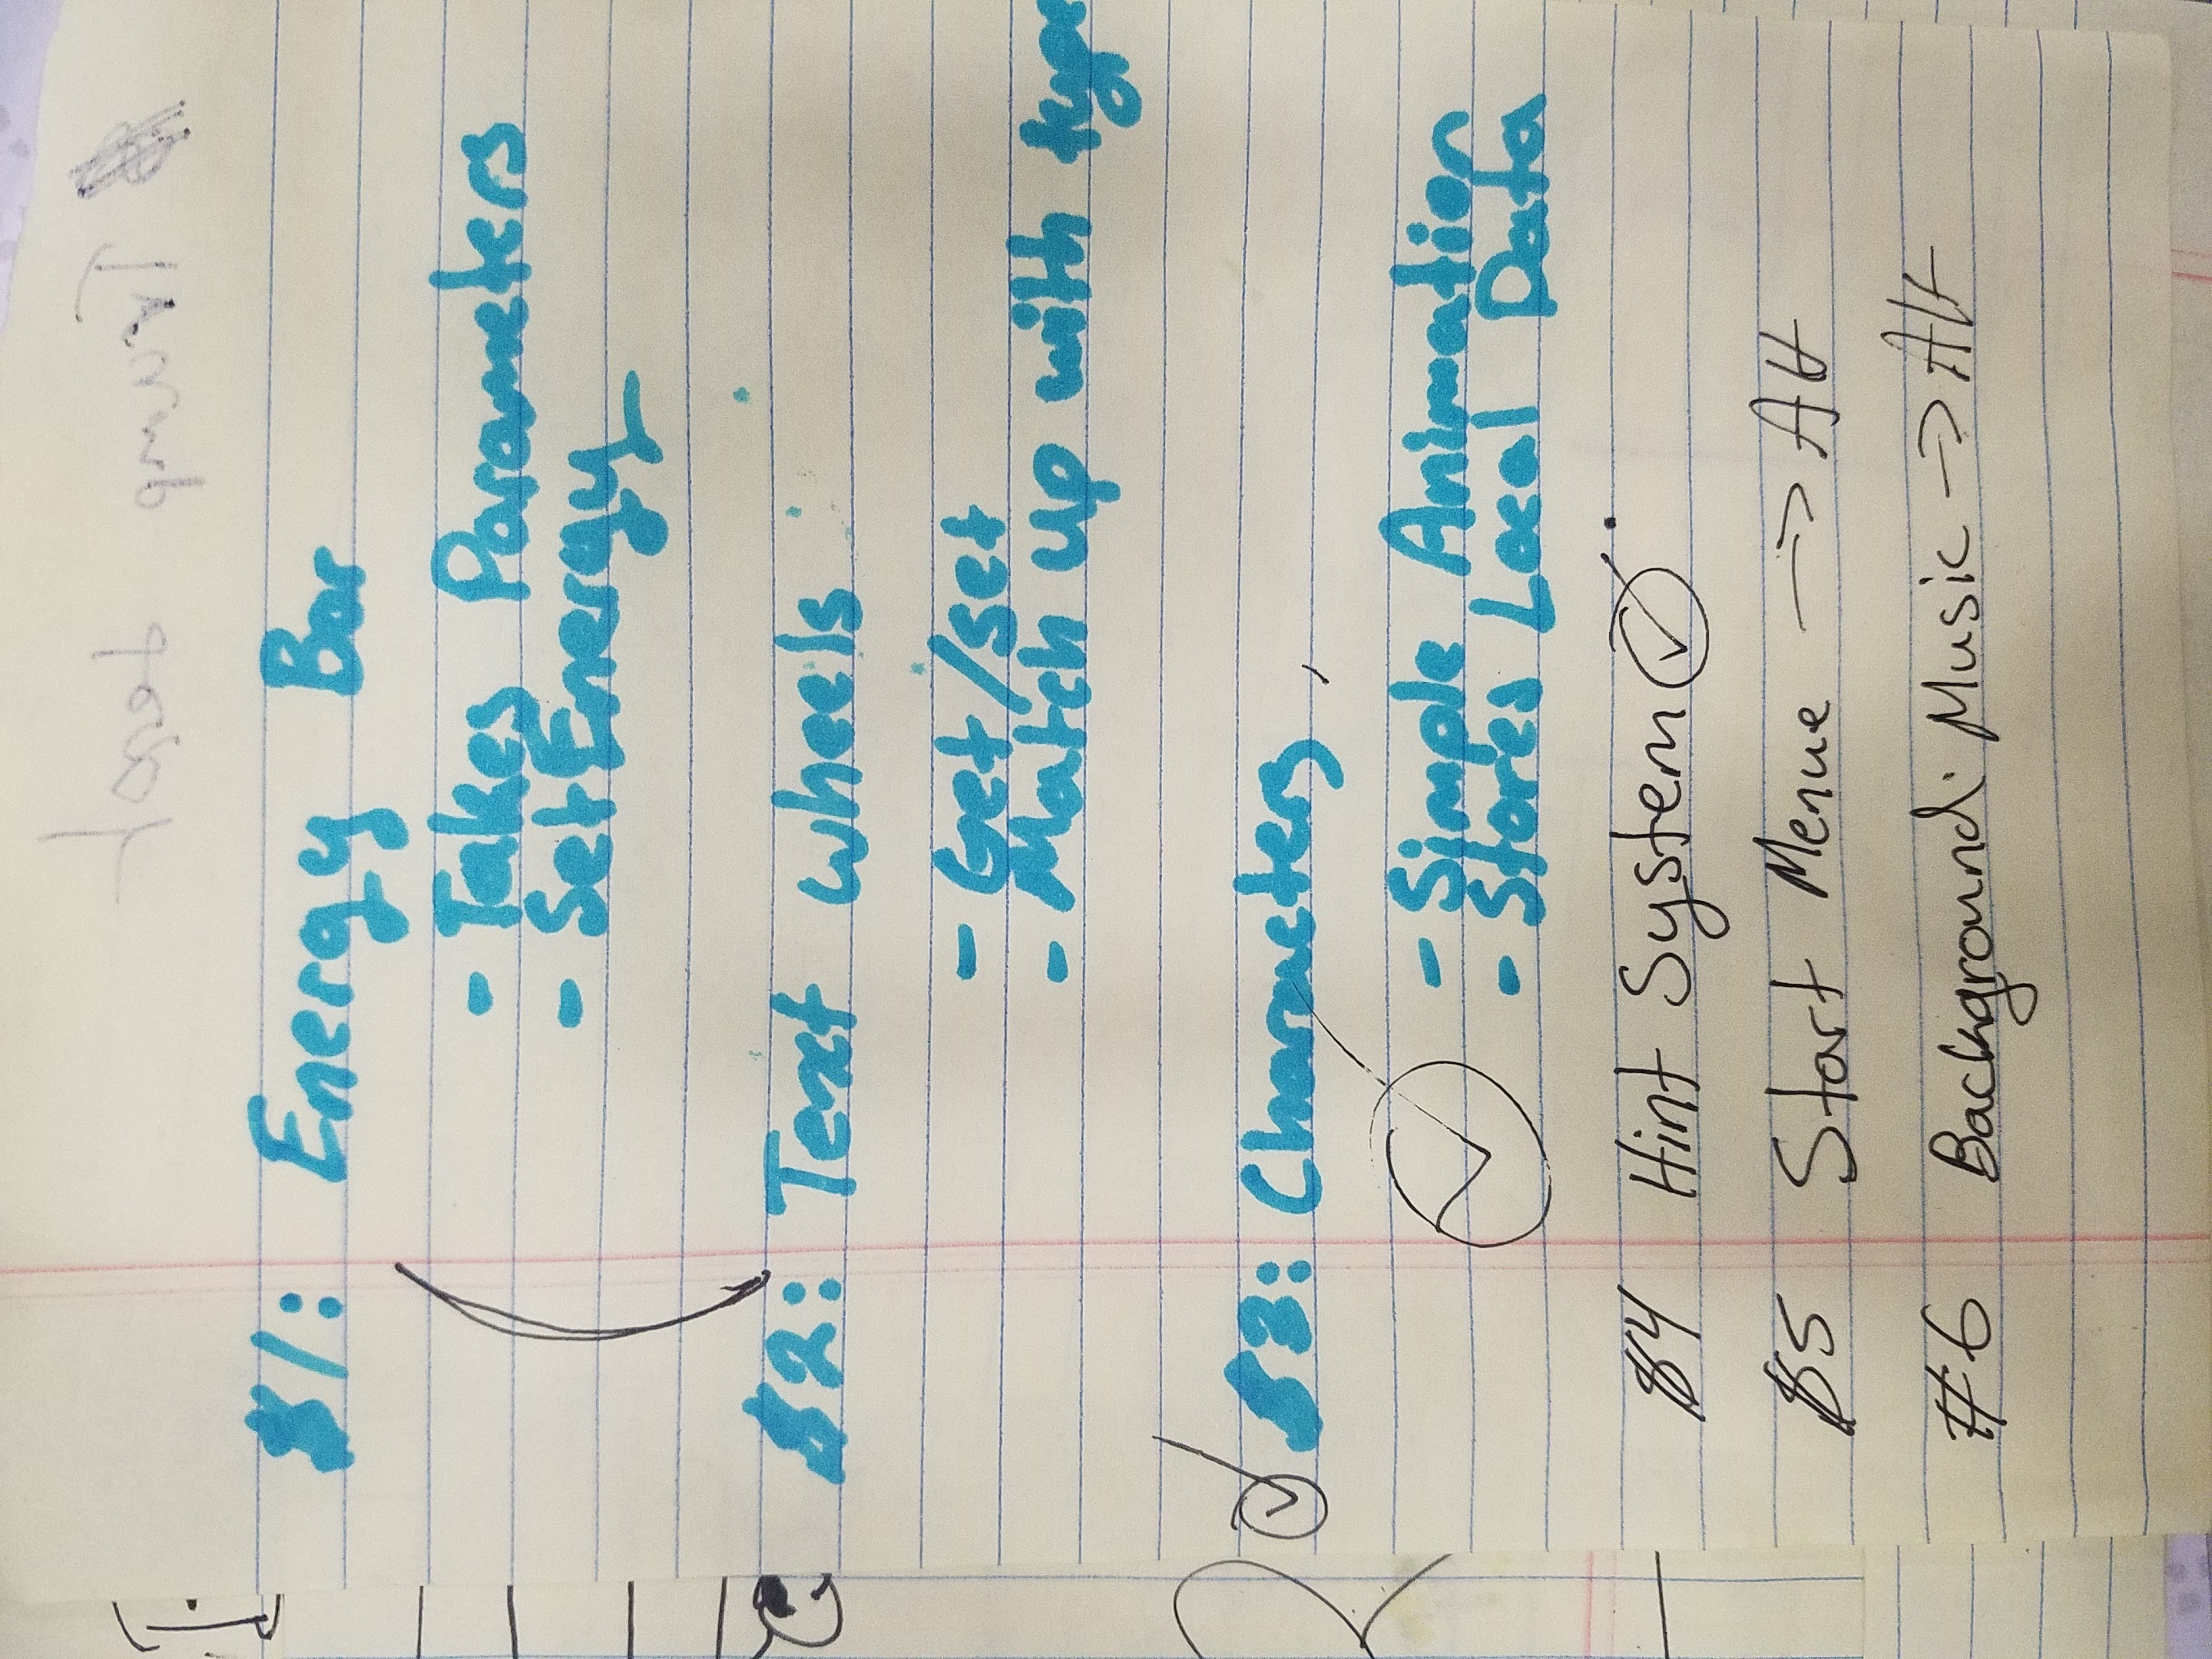 1: Energy Bar
- Takes Parameters
- SetEnergy
2: Text wheels
- Get/set
- Match up with type
3: Characters
- Simple Animation
- Stores Local Data
4 Hint System
5 Start Menue → AH
#6 Background Music → AH